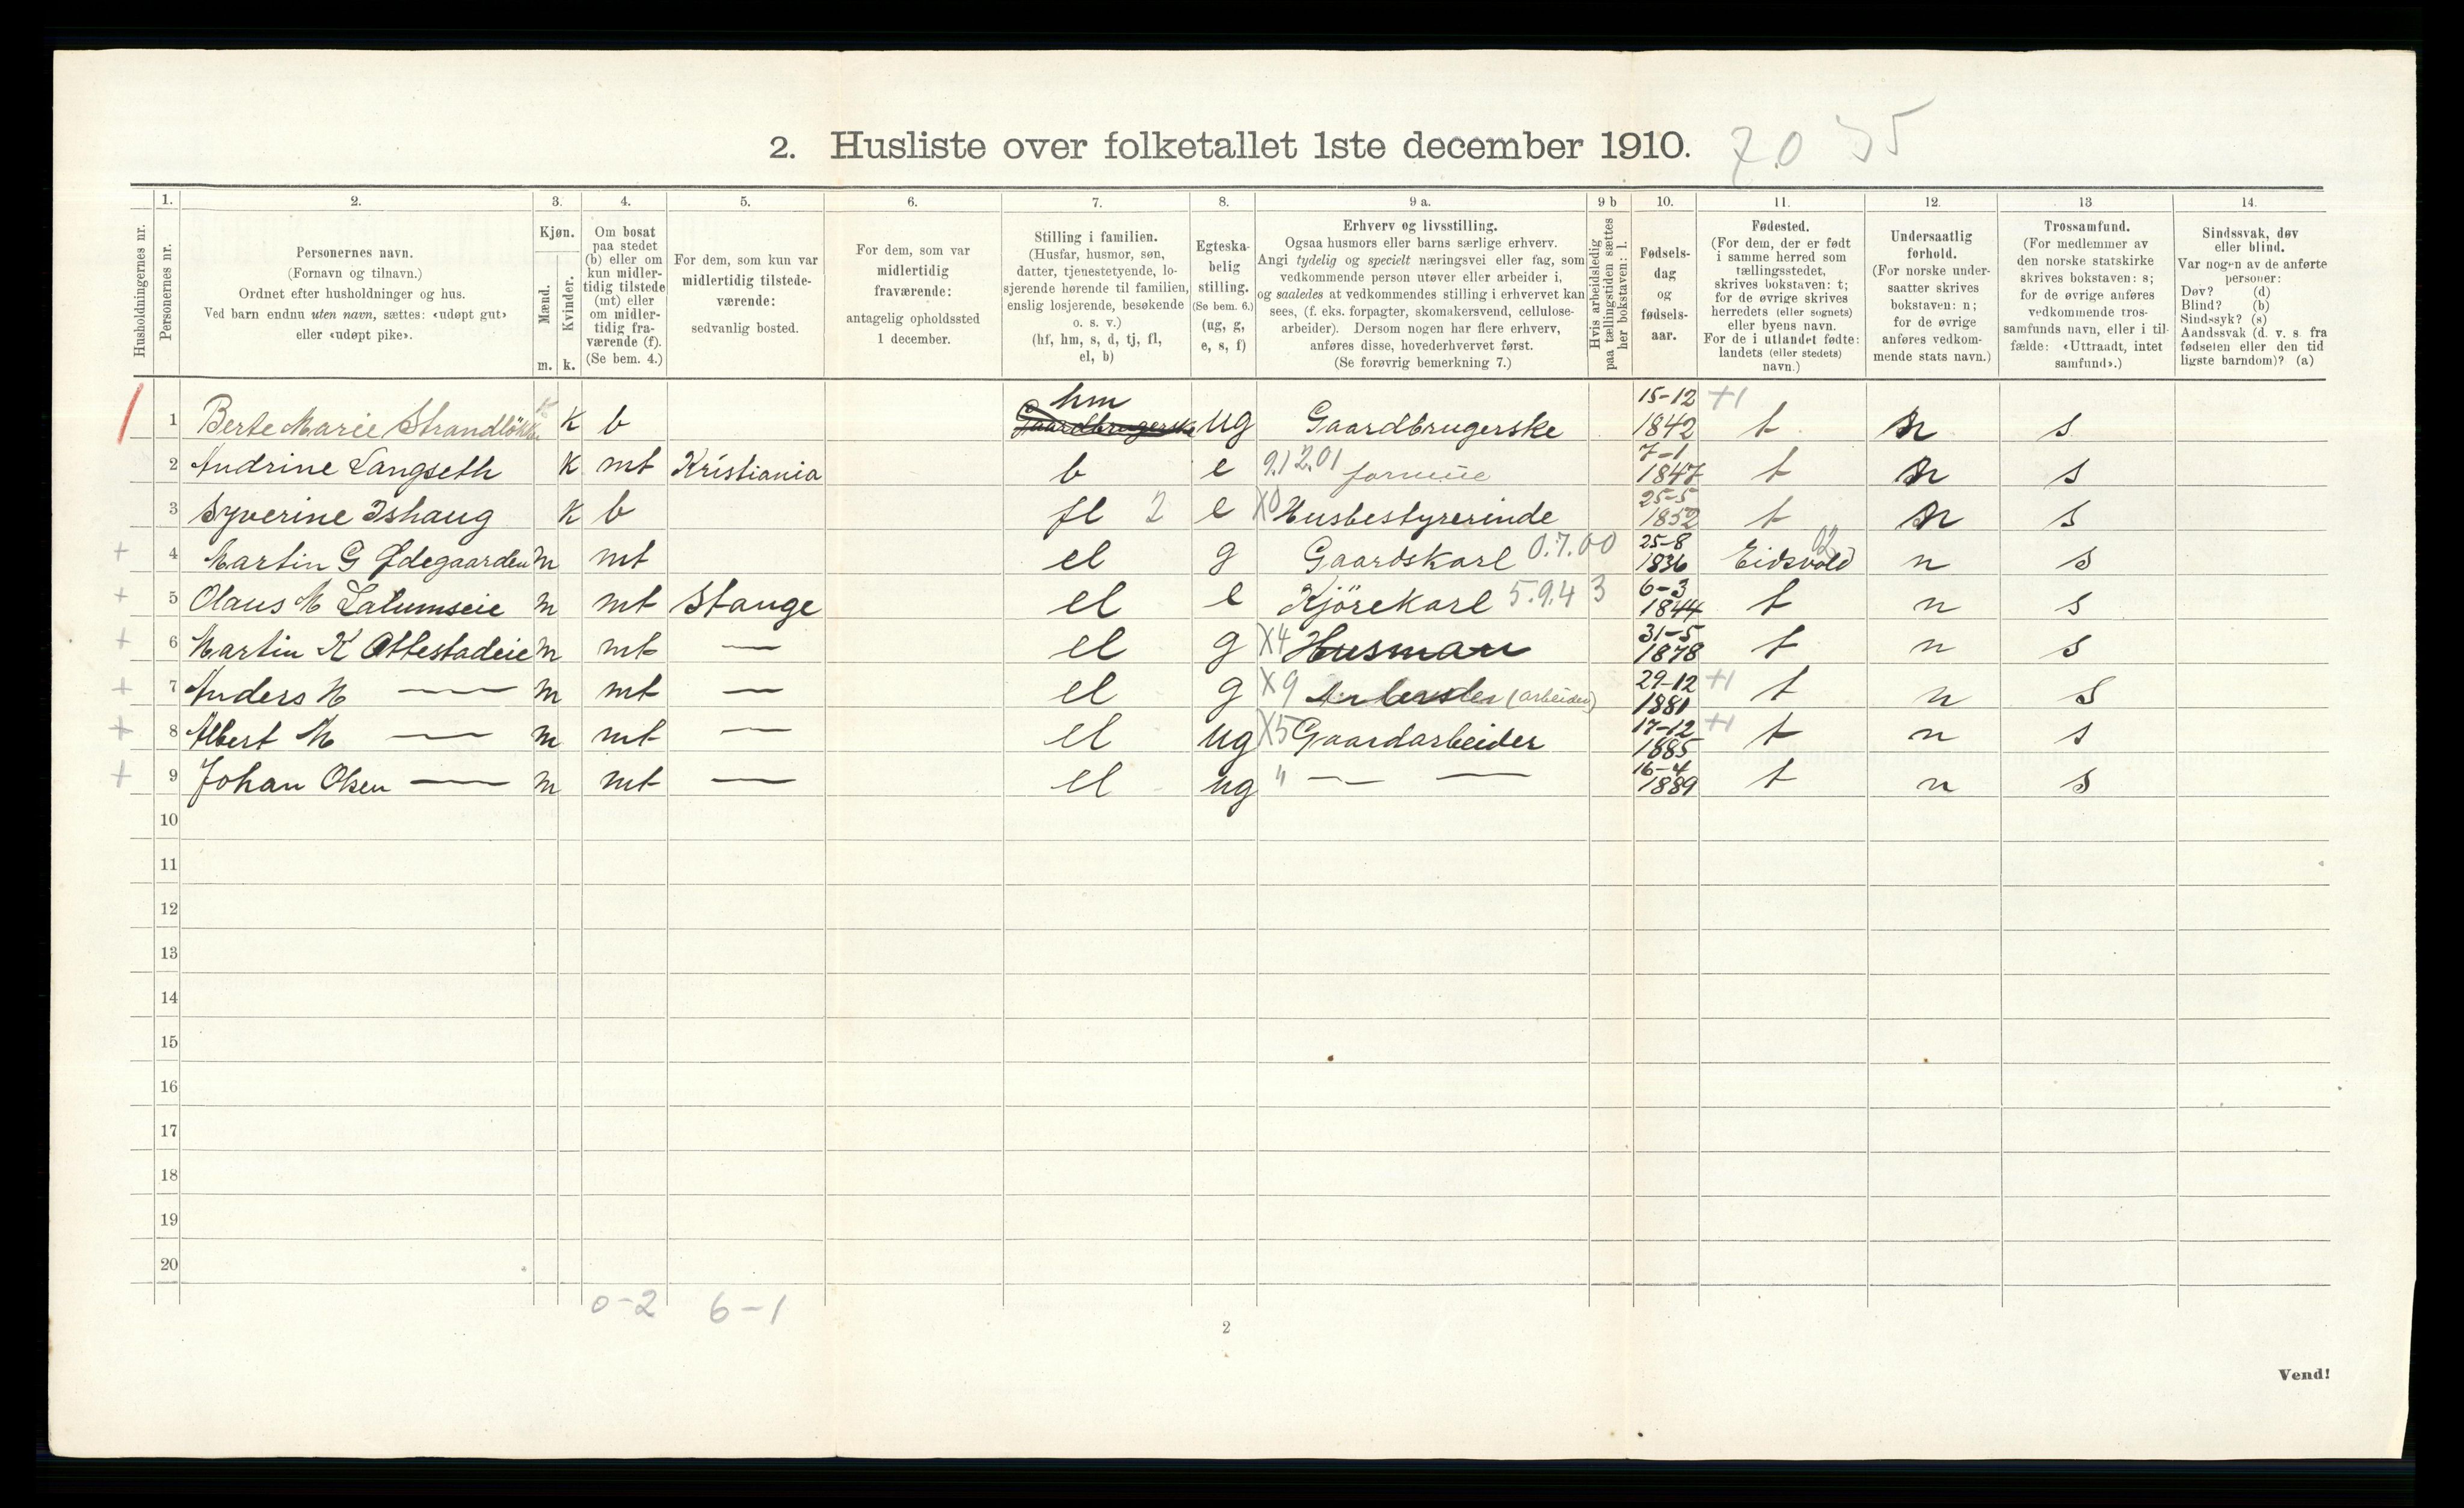 2. Husliste over folketallet 1ste december 1910. 7.0 35
1. 2. 3. 4. 5. 6. 7. 8. 9 a. 9 b 10. 11. 12. 13 14.
Husholdningernes nr.
Personernes nr.
Personernes navn.
(Fornavn og tilnavn.)
Ordnet efter husholdninger og hus.
Ved barn endnu uten navn, sættes: «udøpt gut»
eller «udøpt pike».
Kjøn.
Mænd.
Kvinder.
m. k.
Om bosat
paa stedet
(b) eller om
kun midler-
tidig tilstede
(mt) eller
om midler-
tidig fra-
værende (f).
(Se bem. 4.)
For dem, som kun var
midlertidig tilstede-
værende:
sedvanlig bosted.
For dem, som var
midlertidig
fraværende:
antagelig opholdssted
1 december.
Stilling i familien.
(Husfar, husmor, søn,
datter, tjenestetyende, lo-
sjerende hørende til familien,
enslig losjerende, besøkende
o. s. v.)
(hf, hm, s, d, tj, fl,
el, b)
Egteska-
belig
stilling.
(Se bem. 6.)
(ug, g,
e, s, f)
Erhverv og livsstilling.
Ogsaa husmors eller barns særlige erhverv.
Angi tydelig og specielt næringsvei eller fag, som
vedkommende person utøver eller arbeider i,
og saaledes at vedkommendes stilling i erhvervet kan
sees, (f. eks. forpagter, skomakersvend, cellulose-
arbeider). Dersom nogen har flere erhverv,
anføres disse, hovederhvervet først.
(Se forøvrig bemerkning 7.)
Hvis arbeidsledig
paa tællingstiden sættes
her bokstaven: l.
Fødsels-
dag
og
fødsels-
aar.
Fødested.
(For dem, der er født
i samme herred som
tællingsstedet,
skrives bokstaven: t;
for de øvrige skrives
herredets (eller sognets)
eller byens navn.
For de i utlandet fødte:
landets (eller stedets)
navn.)
Undersaatlig
forhold.
(For norske under-
saatter skrives
bokstaven: n;
for de øvrige
anføres vedkom-
mende stats navn.)
Trossamfund.
(For medlemmer av
den norske statskirke
skrives bokstaven: s;
for de øvrige anføres
vedkommende tros-
samfunds navn, eller i til-
fælde: «Uttraadt, intet
samfund».)
Sindssvak, døv
eller blind.
Var nogen av de anførte
personer:
Døv? (d)
Blind? (b)
Sindssyk? (s)
Aandssvak (d. v. s. fra
fødselen eller den tid
ligste barndom)? (a)
1 Berte Marie Strandlökken k b Gaardbrugerske hm ug Gaardbrugerske 15-12 1842 +1 t n s
2 Andrine Langseth k mt Kristiania b e 9.12.01 formue 7-1 1847 t n s
3 Syverine Ishaug k b fl 2 e X0 Husbestyrerinde 25-5 1852 t n s
+ 4 Martin G Ødegaarden m mt el g Gaardskarl 0.7.00 25-8 1836 Eidsvold 02 n s
+ 5 Olaus M Latumseie m mt Stange el e Kjörekarl 5.9.4 3 6-3 1844 t n s
+ 6 Martin K Ottestadeie m mt — el g X4 Husman 31-5 1878 t n s
+ 7 Anders H — m mt — el g X9 (arbeider) 29-12 1881 +1 t n s
+ 8 Albert M — m mt — el ug X5 Gaardarbeider 17-12 1885 +1 t n s
+ 9 Johan Olsen — m mt — el ug " — — 16-4 1889 t n s
10
11
12
13
14
15
16
17
18
19
20
0-2 6-1
2
Vend!